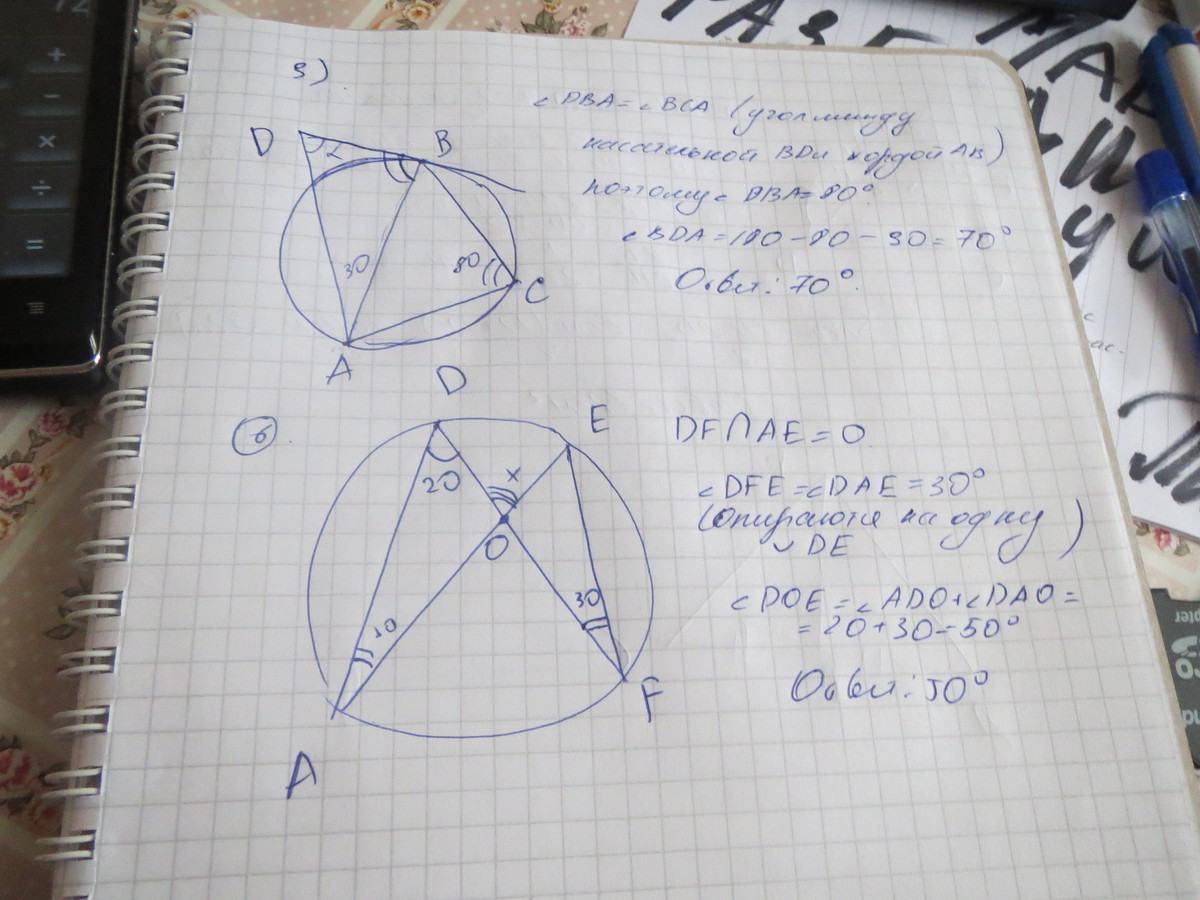 3)
∠DBA = ∠BCA (угол между
касательной BD и хордой AB)
поэтому ∠DBA = 80°
∠BDA = 180 - 80 - 30 = 70°
Ответ: 70°.
D
B
30
80
C
A
6.
D
E
20
x
O
30
30
A
F
DF∩AE = O.
∠DFE = ∠DAE = 30°
(опираются на одну
◡DE)
∠DOE = ∠ADO + ∠DAO =
= 20 + 30 = 50°
Ответ: 50°
+
−
×
÷
=